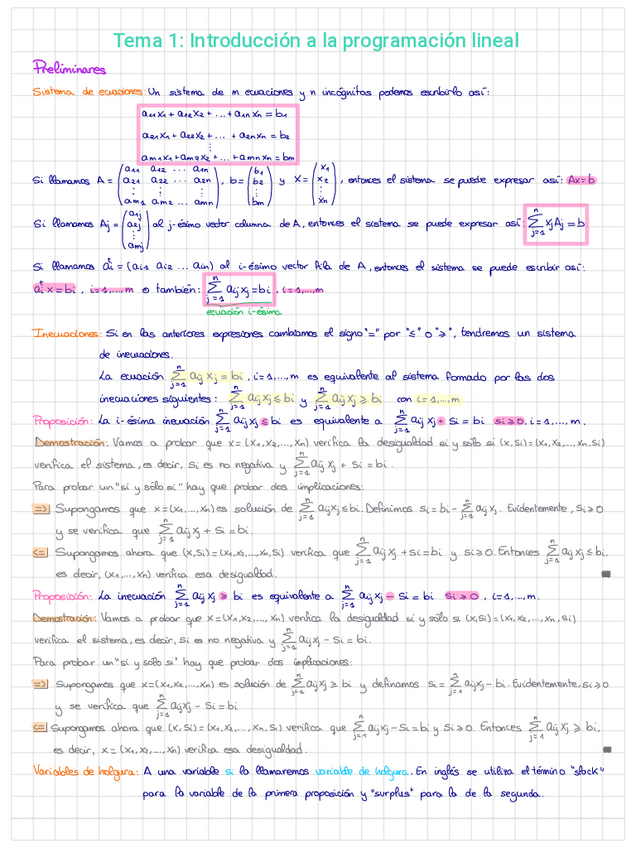 Tema 1: Introducción a la programación lineal
Preliminares
Sistema de ecuaciones: Un sistema de m ecuaciones y n incógnitas podemos escribirlo así:
a₁₁x₁ + a₁₂x₂ + ... + a₁ₙxₙ = b₁
a₂₁x₁ + a₂₂x₂ + ... + a₂ₙxₙ = b₂
⋮
aₘ₁x₁ + aₘ₂x₂ + ... + aₘₙxₙ = bₘ
Si llamamos A = (a₁₁ a₁₂ ... a₁ₙ; a₂₁ a₂₂ ... a₂ₙ; ⋮ ⋮ ⋮; aₘ₁ aₘ₂ ... aₘₙ), b = (b₁ b₂ ⋮ bₘ) y X = (x₁ x₂ ⋮ xₙ), entonces el sistema se puede expresar así: Ax = b
Si llamamos Aⱼ = (a₁ⱼ a₂ⱼ ⋮ aₘⱼ) al j-ésimo vector columna de A, entonces el sistema se puede expresar así: ∑ⁿⱼ₌₁ xⱼAⱼ = b
Si llamamos aⁱ = (aᵢ₁ aᵢ₂ ... aᵢₙ) al i-ésimo vector fila de A, entonces el sistema se puede escribir así:
aⁱx = bᵢ, i=1,...,m o también: ∑ⁿⱼ₌₁ aᵢⱼxⱼ = bᵢ, i=1,...,m
ecuación i-ésima
Inecuaciones: Si en las anteriores expresiones cambiamos el signo "=" por "≤" o "≥", tendremos un sistema
de inecuaciones.
La ecuación ∑ⁿⱼ₌₁ aᵢⱼxⱼ = bᵢ, i=1,...,m es equivalente al sistema formado por las dos
inecuaciones siguientes: ∑ⁿⱼ₌₁ aᵢⱼxⱼ ≤ bᵢ y ∑ⁿⱼ₌₁ aᵢⱼxⱼ ≥ bᵢ con i=1,...,m
Proposición: La i-ésima inecuación ∑ⁿⱼ₌₁ aᵢⱼxⱼ ≤ bᵢ es equivalente a ∑ⁿⱼ₌₁ aᵢⱼxⱼ + sᵢ = bᵢ sᵢ≥0, i=1,...,m.
Demostración: Vamos a probar que x = (x₁, x₂,..., xₙ) verifica la desigualdad si y sólo si (x, sᵢ) = (x₁, x₂,..., xₙ, sᵢ)
verifica el sistema, es decir, sᵢ es no negativa y ∑ⁿⱼ₌₁ aᵢⱼxⱼ + sᵢ = bᵢ.
Para probar un "si y sólo si" hay que probar dos implicaciones:
=>| Supongamos que x = (x₁,..., xₙ) es solución de ∑ⁿⱼ₌₁ aᵢⱼxⱼ ≤ bᵢ. Definimos sᵢ = bᵢ - ∑ⁿⱼ₌₁ aᵢⱼxⱼ. Evidentemente, sᵢ≥0
y se verifica que ∑ⁿⱼ₌₁ aᵢⱼxⱼ + sᵢ = bᵢ.
<=| Supongamos ahora que (x, sᵢ) = (x₁, x₂,..., xₙ, sᵢ) verifica que ∑ⁿⱼ₌₁ aᵢⱼxⱼ + sᵢ = bᵢ y sᵢ≥0. Entonces ∑ⁿⱼ₌₁ aᵢⱼxⱼ ≤ bᵢ,
es decir, (x₁,..., xₙ) verifica esa desigualdad.
Proposición: La inecuación ∑ⁿⱼ₌₁ aᵢⱼxⱼ ≥ bᵢ es equivalente a ∑ⁿⱼ₌₁ aᵢⱼxⱼ - sᵢ = bᵢ sᵢ≥0, i=1,...,m.
Demostración: Vamos a probar que x = (x₁, x₂,..., xₙ) verifica la desigualdad si y sólo si (x, sᵢ) = (x₁, x₂,..., xₙ, sᵢ)
verifica el sistema, es decir, sᵢ es no negativa y ∑ⁿⱼ₌₁ aᵢⱼxⱼ - sᵢ = bᵢ.
Para probar un "si y sólo si" hay que probar dos implicaciones:
=>| Supongamos que x = (x₁, x₂,..., xₙ) es solución de ∑ⁿⱼ₌₁ aᵢⱼxⱼ ≥ bᵢ y definamos sᵢ = ∑ⁿⱼ₌₁ aᵢⱼxⱼ - bᵢ. Evidentemente, sᵢ≥0
y se verifica que ∑ⁿⱼ₌₁ aᵢⱼxⱼ - sᵢ = bᵢ
<=| Supongamos ahora que (x, sᵢ) = (x₁, x₂,..., xₙ, sᵢ) verifica que ∑ⁿⱼ₌₁ aᵢⱼxⱼ - sᵢ = bᵢ y sᵢ≥0. Entonces ∑ⁿⱼ₌₁ aᵢⱼxⱼ ≥ bᵢ,
es decir, x = (x₁, x₂,..., xₙ) verifica esa desigualdad.
Variables de holgura: A una variable sᵢ la llamaremos variable de holgura. En inglés se utiliza el término "slack"
para la variable de la primera proposición y "surplus" para la de la segunda.